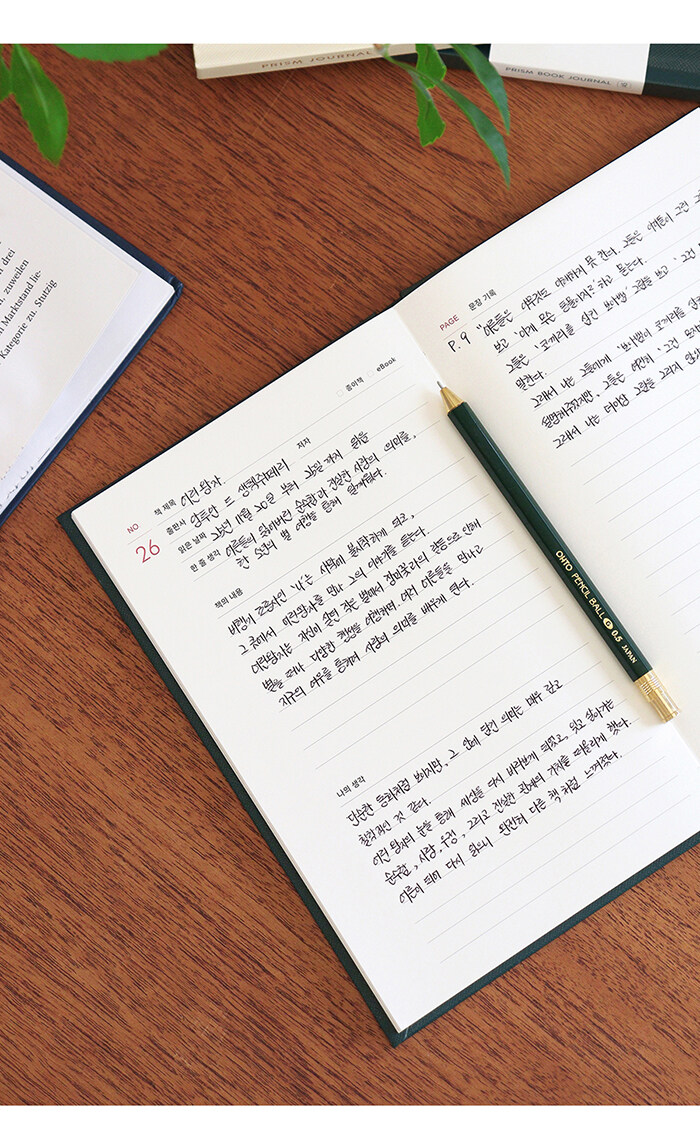 PRISM JOURNAL
PRISM BOOK JOURNAL
drei
zuweilen
Marktstand lie-
Kategorie zu. Stutzig
종이책 eBook
NO 책 제목 어린왕자. 저자
26 출판사 앙투안 드 생텍쥐페리
읽은 날짜 24년 11월 20일 부터 24일 까지 읽음
한 줄 생각 어른들의 잃어버린 순수함과 진실한 사랑의 의미를,
여행을 통해 일깨워줌.
책의 내용
비행기 조종사인 '나'는 사막에 불시착하게 되고,
그 곳에서 어린왕자를 만나 그의 이야기를 듣는다.
어린왕자는 자신이 살던 작은 별에서 장미꽃과의 갈등으로 인해
별을 떠나 다양한 행성을 여행하며, 여러 어른들을 만나고
지구의 여우를 통해서 사랑의 의미를 배우게 된다.
나의 생각
단순한 동화처럼 보이지만, 그 안에 담긴 의미는 매우 깊고
철학적인 것 같다.
어린 왕자의 눈을 통해 세상을 다시 바라보게 되었고, 잊고 살아가는
순수함, 사랑, 우정, 그리고 진실한 관계의 가치를 떠올리게 했다.
어른이 되어 다시 읽으니 완전히 다른 책 처럼 느껴졌다.
PAGE 문장 기록
P.9 "어른들은 아무것도 이해하지 못 한다. 그들은 아이들이 그린 그
보고 '이게 무슨 뜻이지?'하고 묻는다.
그들은 '코끼리를 삼킨 보아뱀' 그림을 보고 '그건
말한다.
그래서 나는 그들에게 '보아뱀이 코끼리를 삼킨
설명해주었지만, 그들은 여전히 '그건 모자
그래서 나는 더이상 그림을 그리지 않게
OHTO PENCIL BALL 0.5 JAPAN